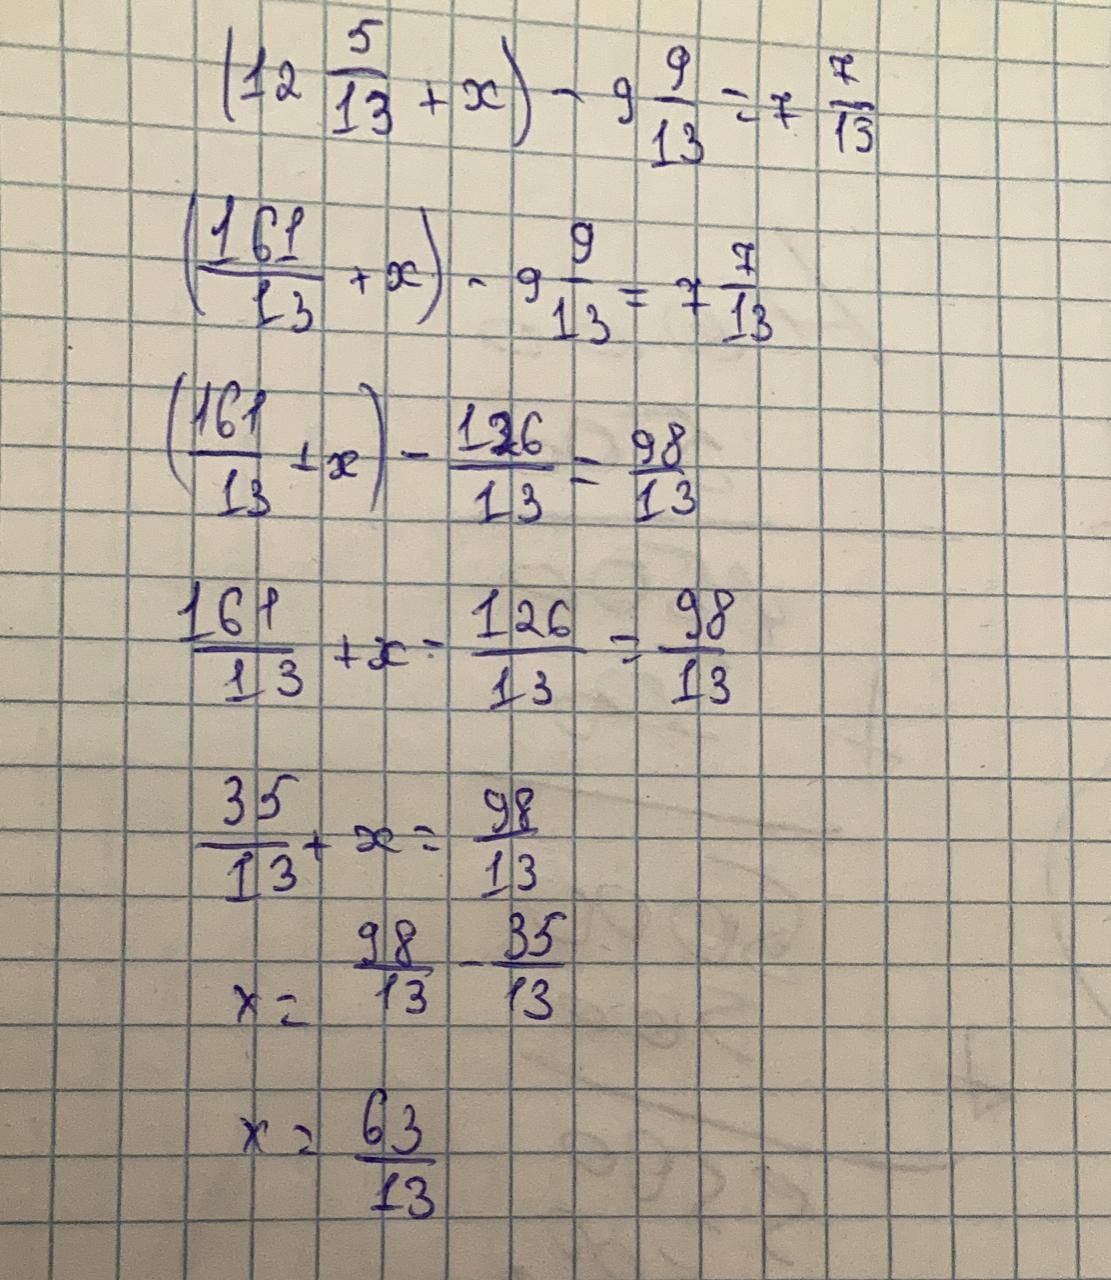 (12 5/13 + x) - 9 9/13 = 7 7/13
(161/13 + x) - 9 9/13 = 7 7/13
(161/13 + x) - 126/13 = 98/13
161/13 + x - 126/13 = 98/13
35/13 + x = 98/13
x = 98/13 - 35/13
x = 63/13